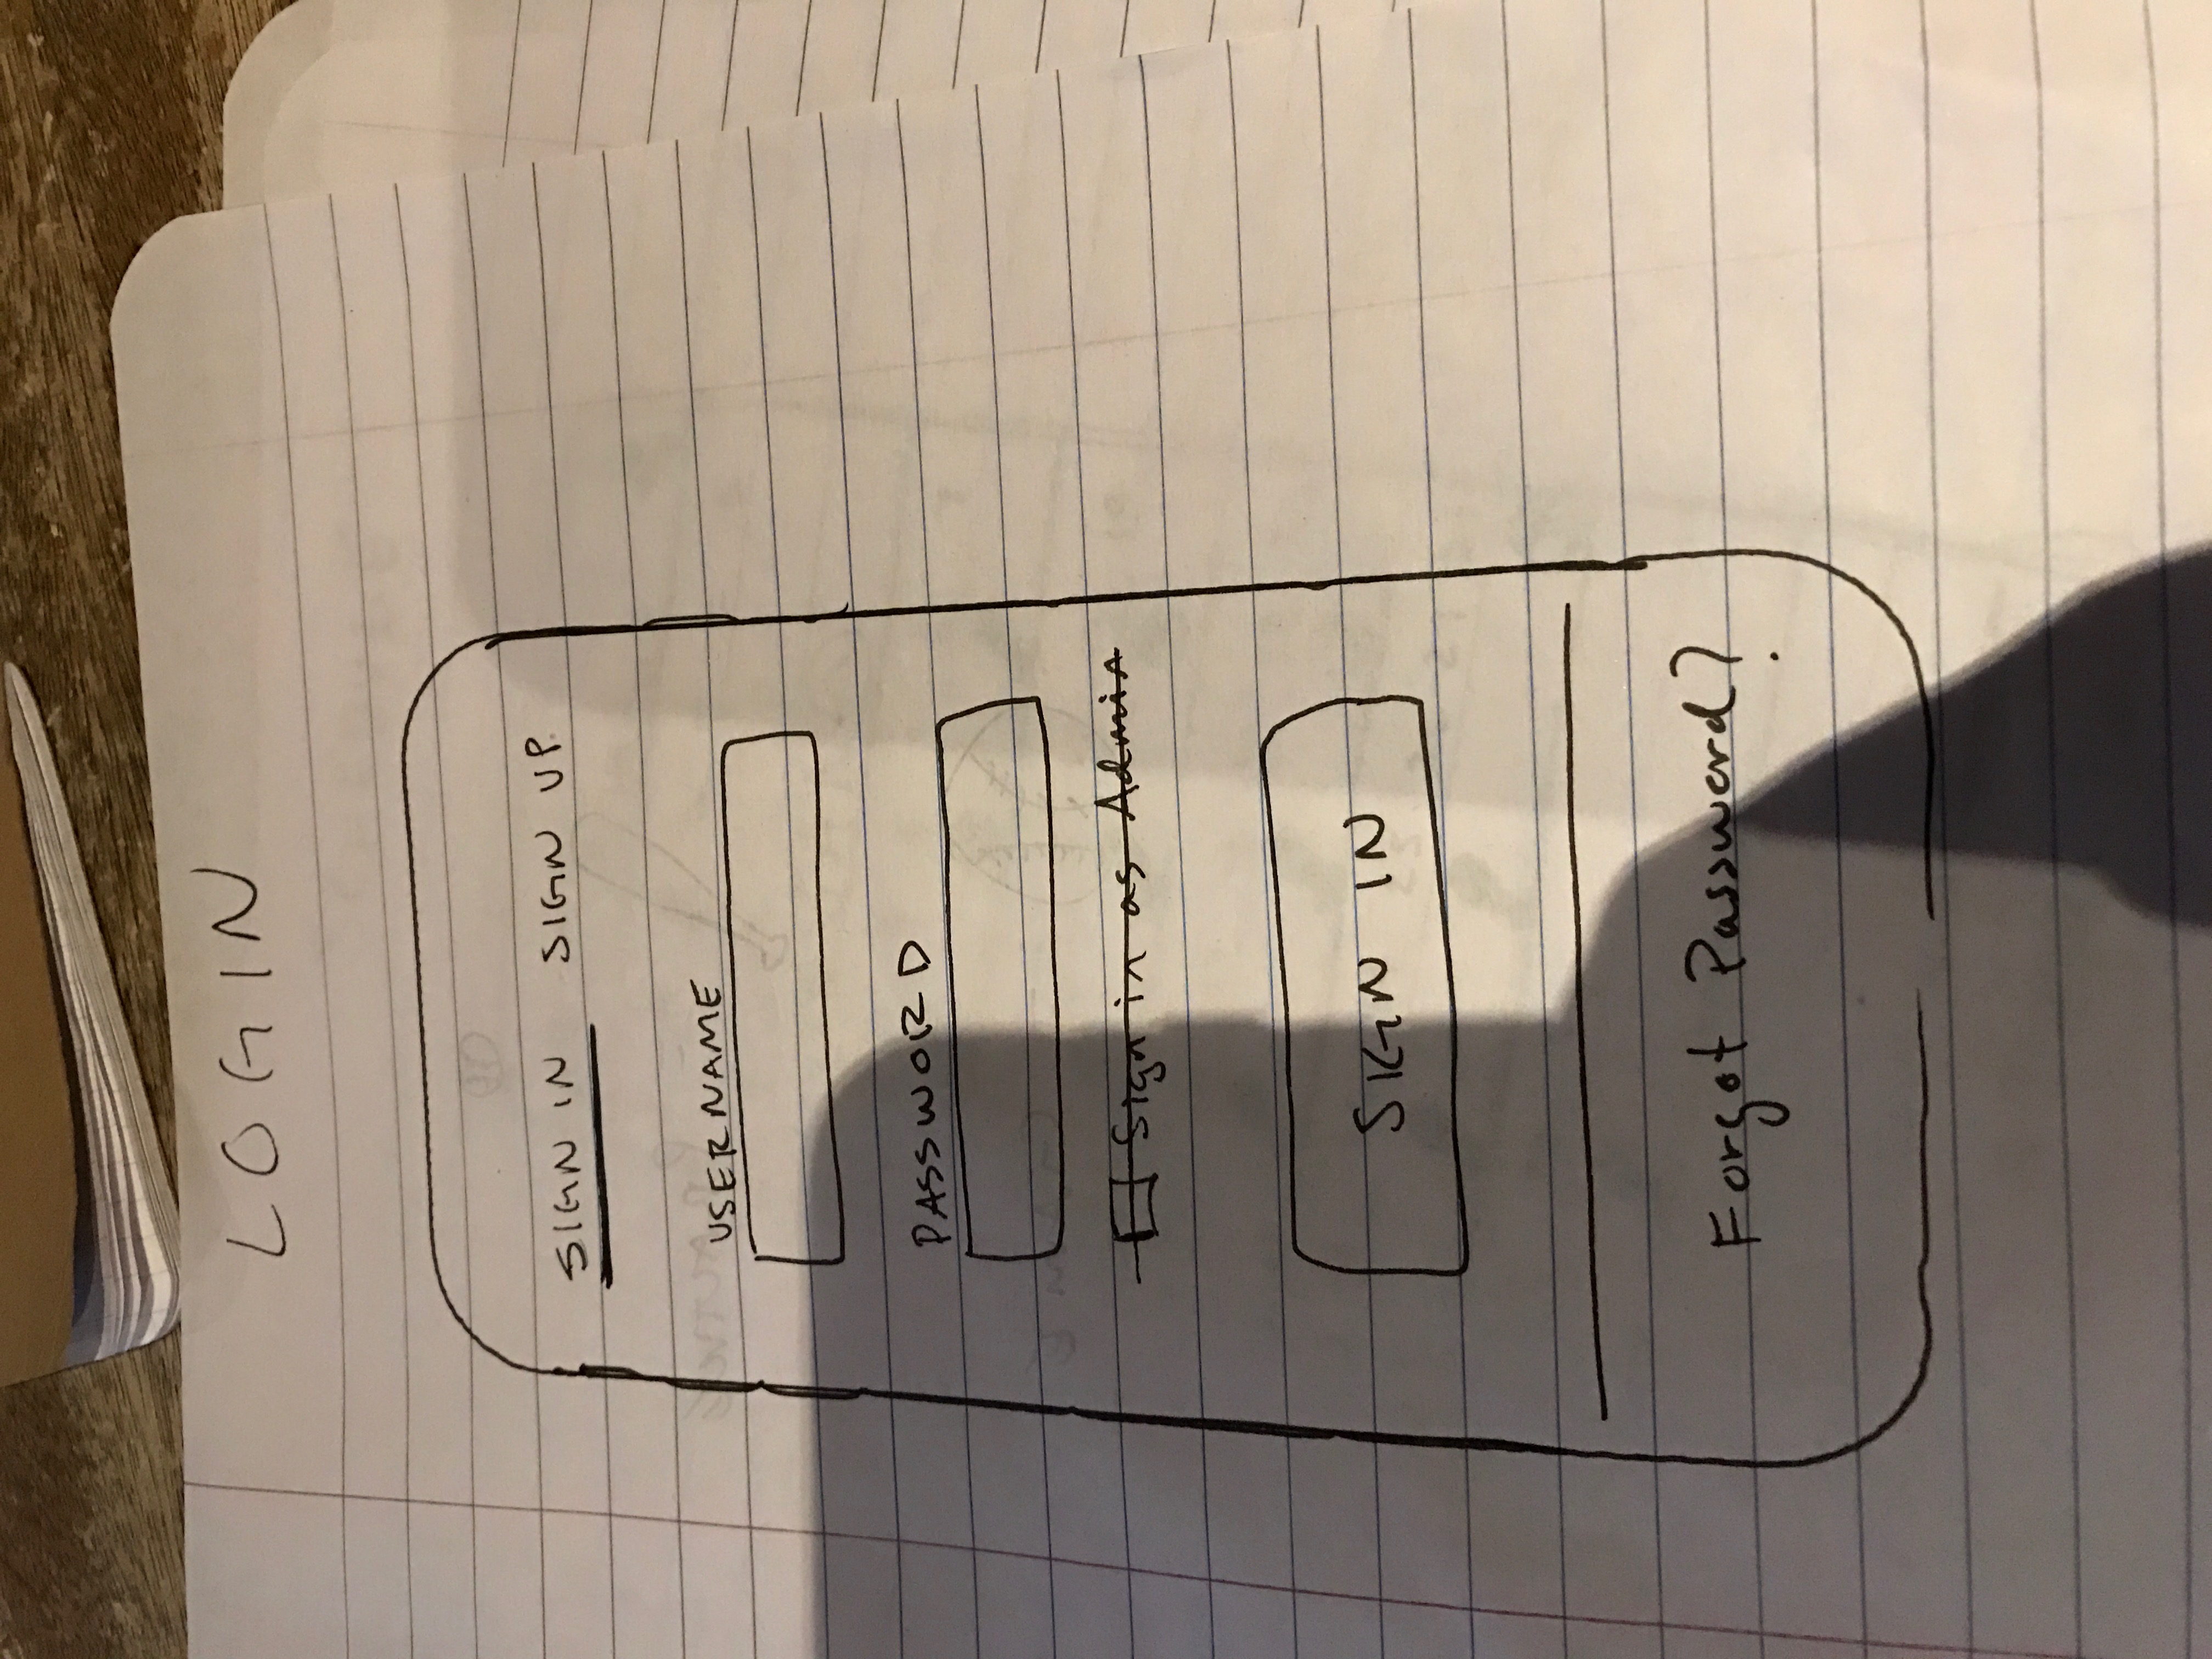 LOGIN
SIGN IN SIGN UP
USERNAME
PASSWORD
Sign in as Admin
SIGN IN
Forgot Password?